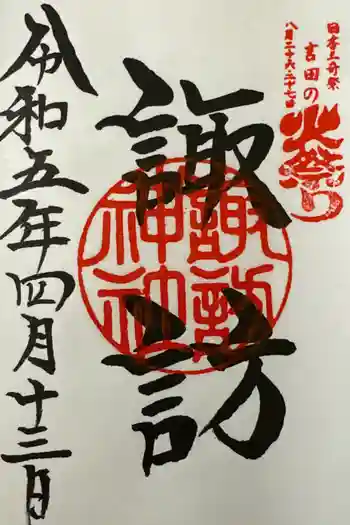 日本三奇祭
吉田の
火祭り
八月二十六・二十七日
諏訪
諏訪
神社
令和五年四月十三日